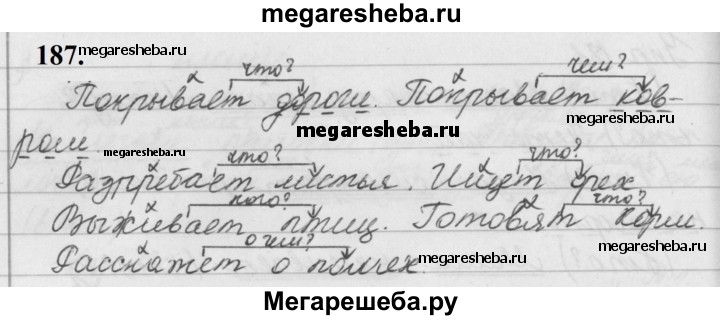 megaresheba.ru
187. megaresheba.ru
что? чем?
Покрывает дороги. Покрывает ков-
megaresheba.ru
ром
megaresheba.ru что? что? megaresheba.ru
Разгребает листья. Ищут орех
кого? что?
Выживает птиц. Готовят корм.
о чём? megaresheba.ru
Расскажет о пчёлах. megaresheba.ru
Мегарешеба.ру